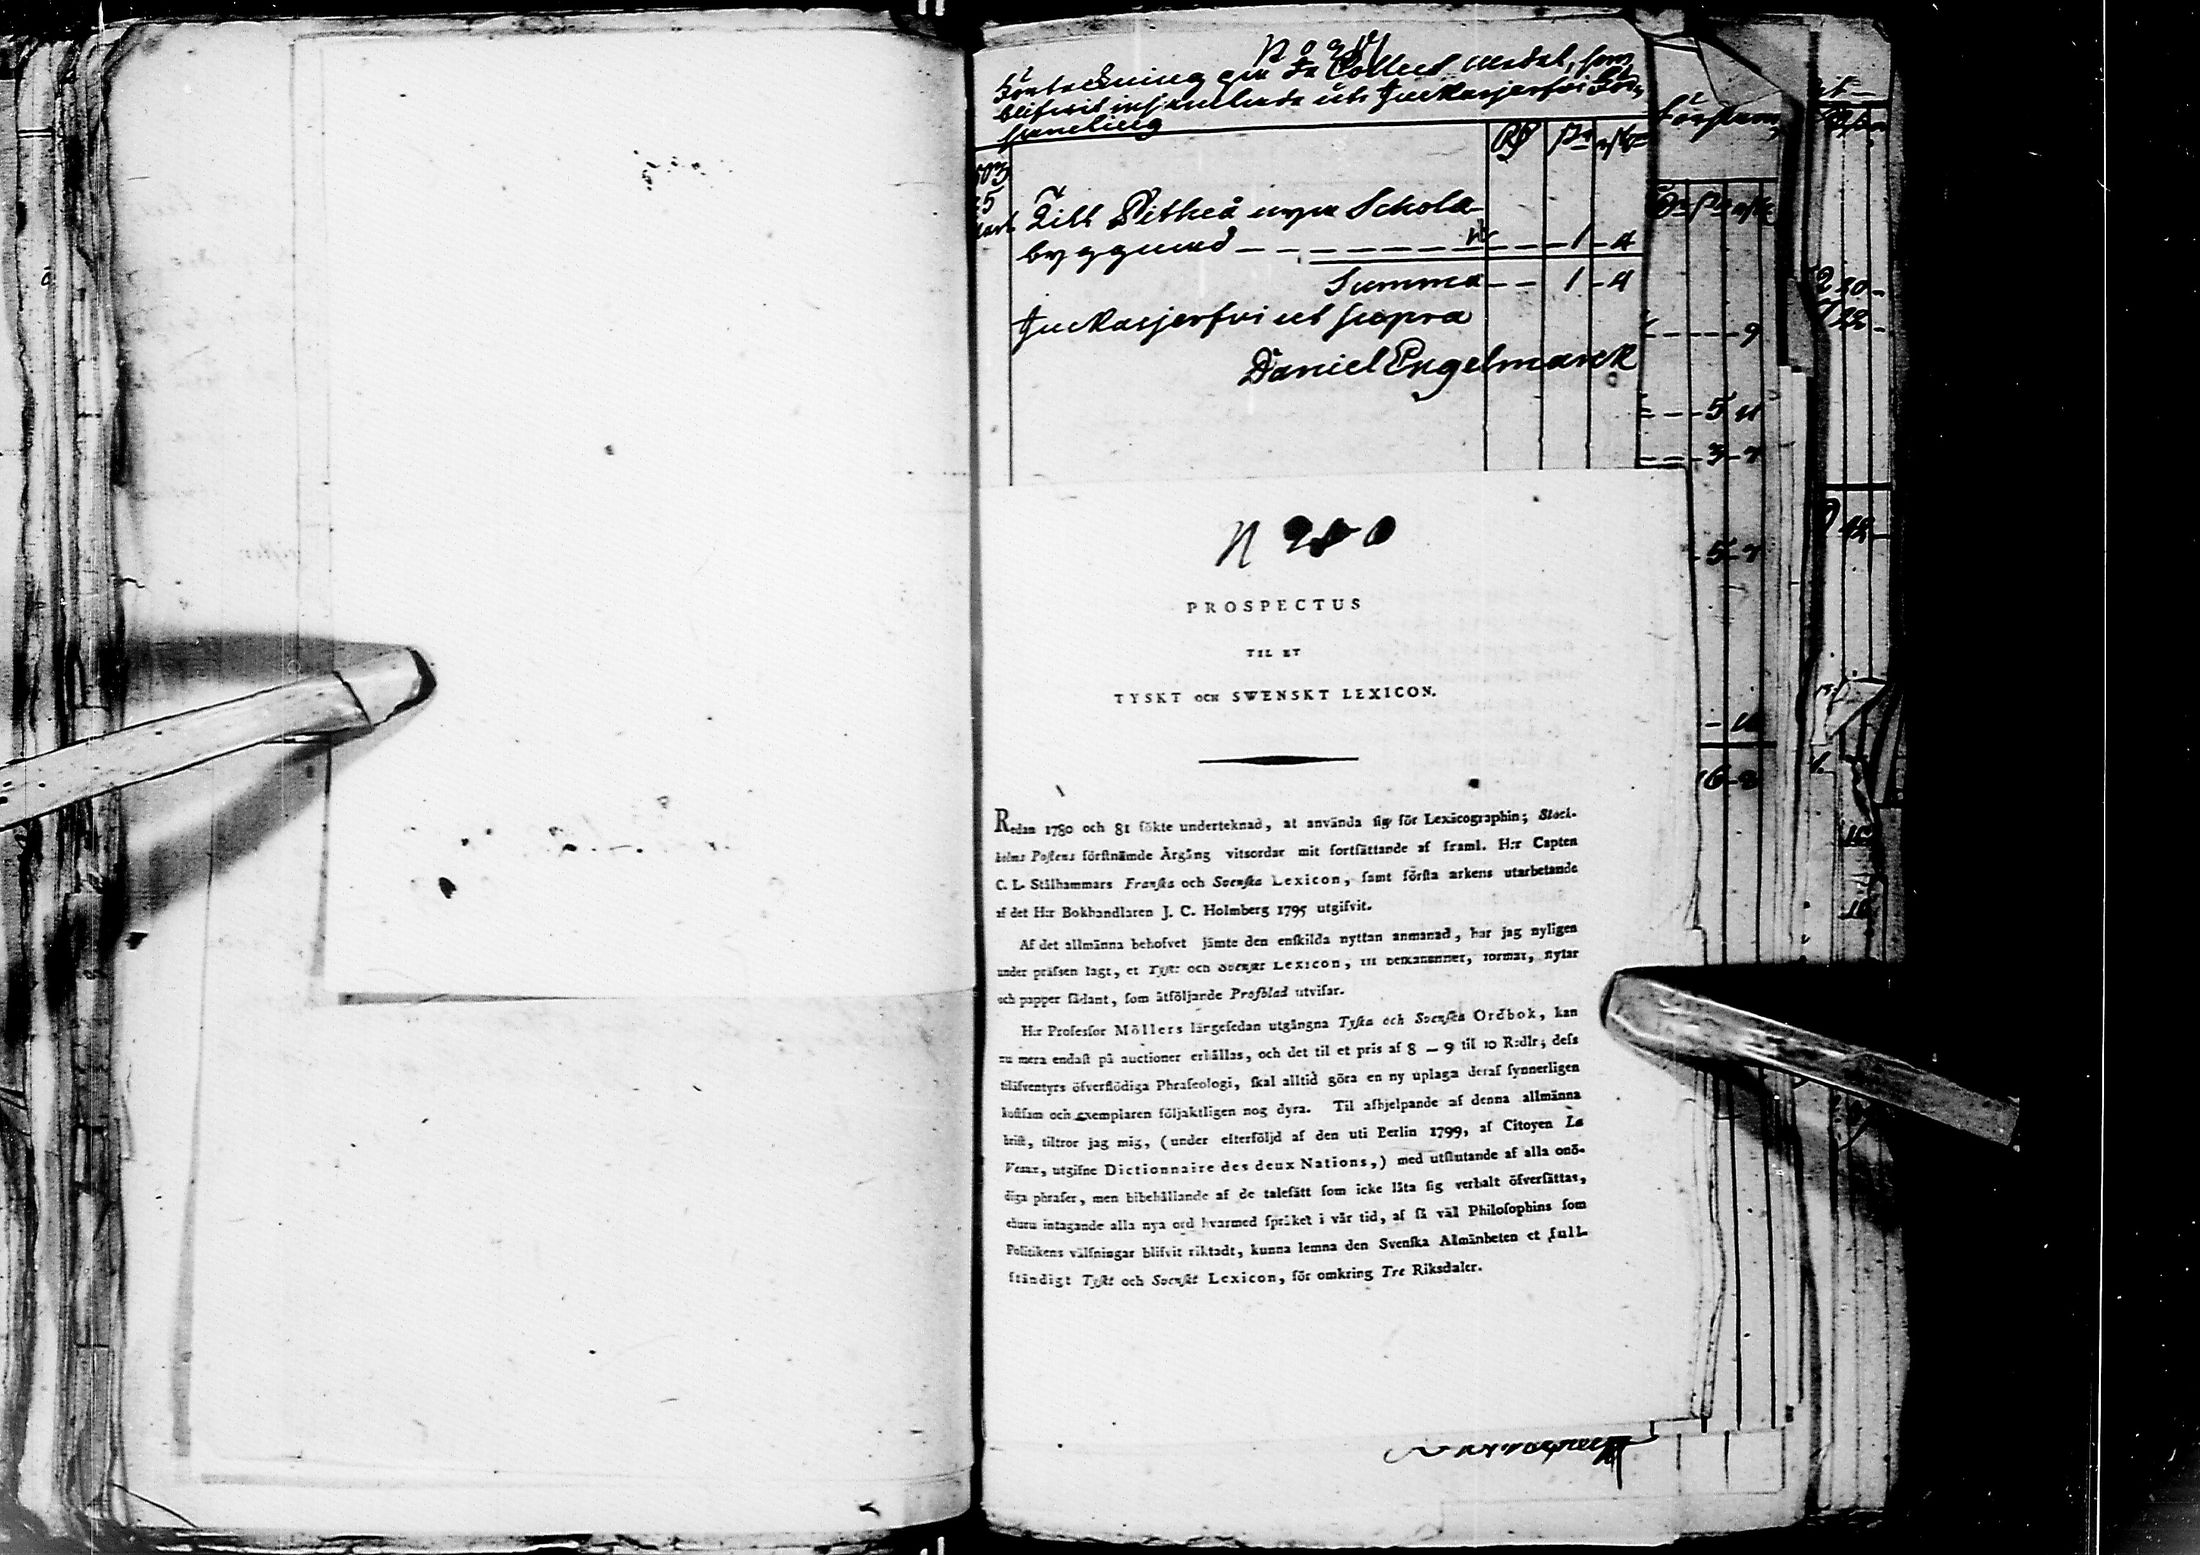 Förteckning på de Collect Medel, som
blifvit insamlade uti Juckasjerfvi För-
samling
Till Pitheå nya Schola
byggnad 1 4
Summa 1 4
Juckasjerfvi ut supra
Daniel Engelmarck
PROSPECTUS
TIL ET
TYSKT OCH SWENSKT LEXICON.
Redan 1780 och 81 ſökte underteknad, at använda ſig för Lexicographin; Stock-
holms Poſtens förſtnämde Årgång vitsordar mit fortſättande af framl. H:r Capten
C. L. Stålhammars Franſka och Svenſka Lexicon, ſamt förſta arkens utarbetande
af det H:r Bokhandlaren J. C. Holmberg 1795 utgifvit.
Af det allmänna behofvet jämte den enſkilda nyttan anmanad, har jag nyligen
under präſsen lagt, et Tyſkt och Svenſkt Lexicon, til beſkaffenhet, format, ſtylar
och papper ſådant, ſom åtföljande Profblad utviſar.
H:r Profeſſor Möllers längeſedan utgångna Tyſka och Svenſka Ordbok, kan
nu mera endaſt på auctioner erhållas, och det til et pris af 8 — 9 til 10 R:dlr; deſs
tiläfventyrs öfverflödiga Phraſeologi, ſkal alltid göra en ny uplaga deraf ſynnerligen
koſtſam och exemplaren följaktligen nog dyra. Til afhjelpande af denna allmänna
briſt, tiltror jag mig, (under efterföljd af den uti Berlin 1799, af Citoyen La
Veaux, utgifne Dictionnaire des deux Nations,) med utſlutande af alla onö-
diga phraſer, men bibehållande af de taleſätt ſom icke låta ſig verbalt öfverſättas,
ehuru intagande alla nya ord hvarmed ſpråket i vår tid, af ſå väl Philoſophins ſom
Politikens välfningar blifvit riktadt, kunna lemna den Svenſka Almänheten et full-
ſtändigt Tyſkt och Svenſkt Lexicon, för omkring Tre Riksdaler.